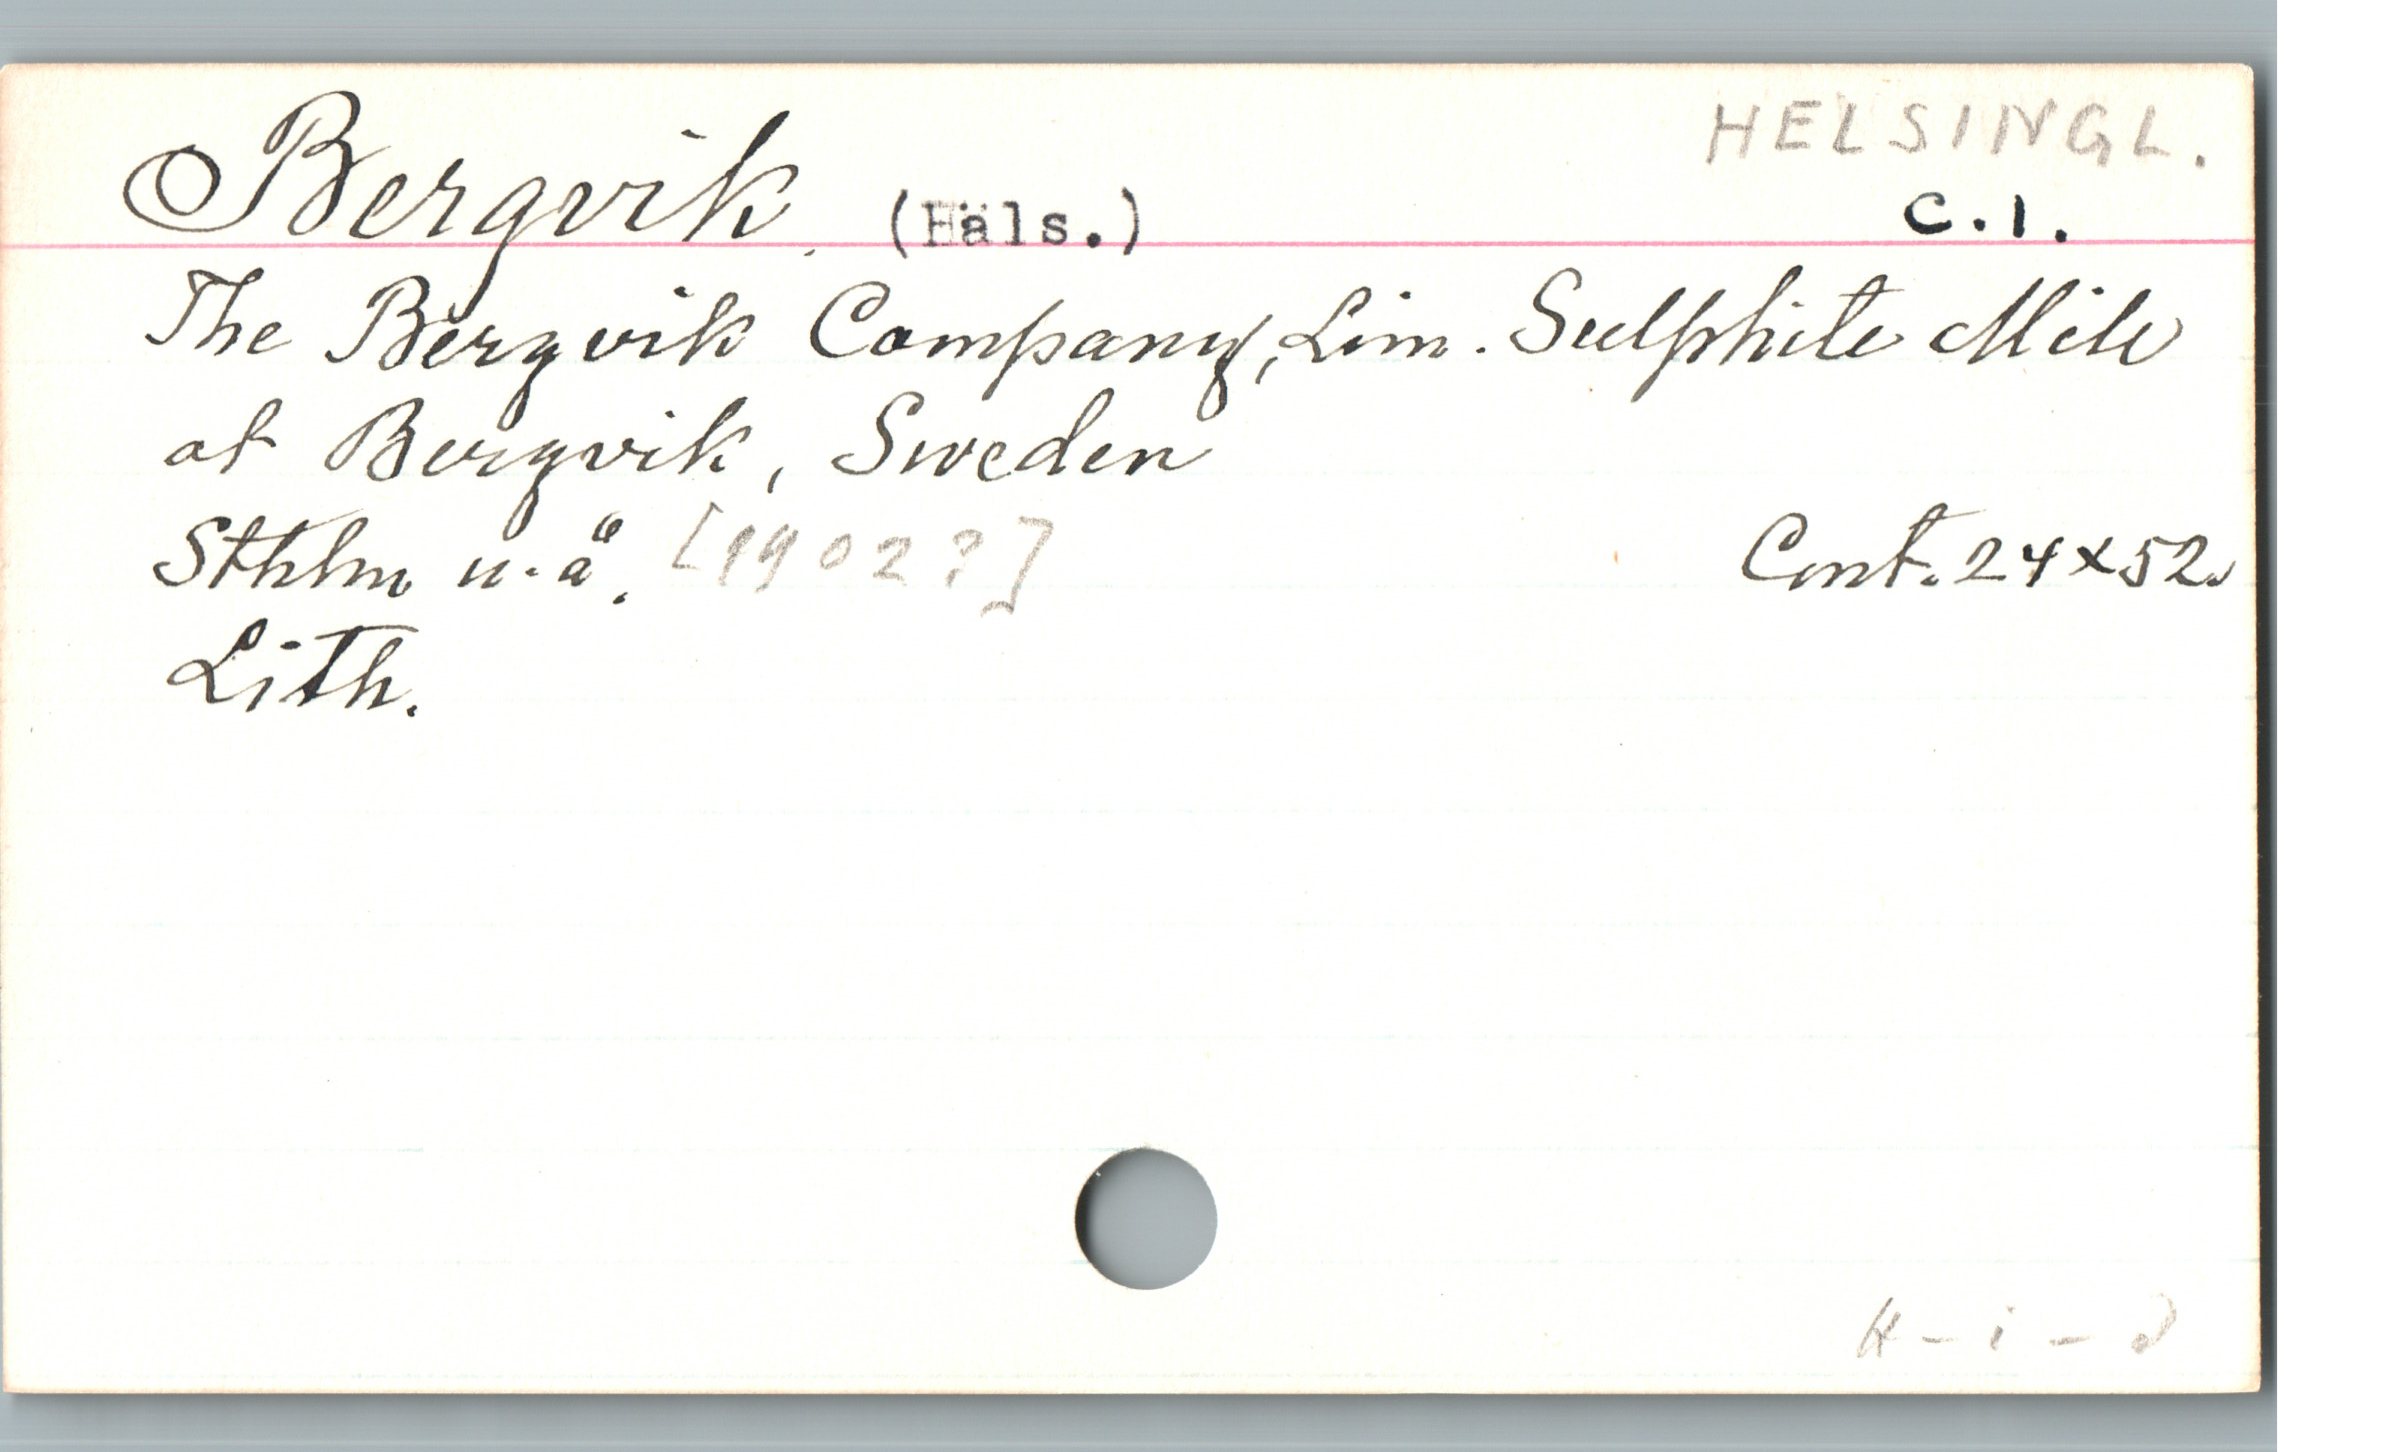 HELSINGL.
Bergvik. (Häls.) C.1.
The Bergvik Company, Lim. Sulphite Mill
at Bergvik, Sweden
Sthlm u. å. [1902?] Cont. 24x52.
Lith.